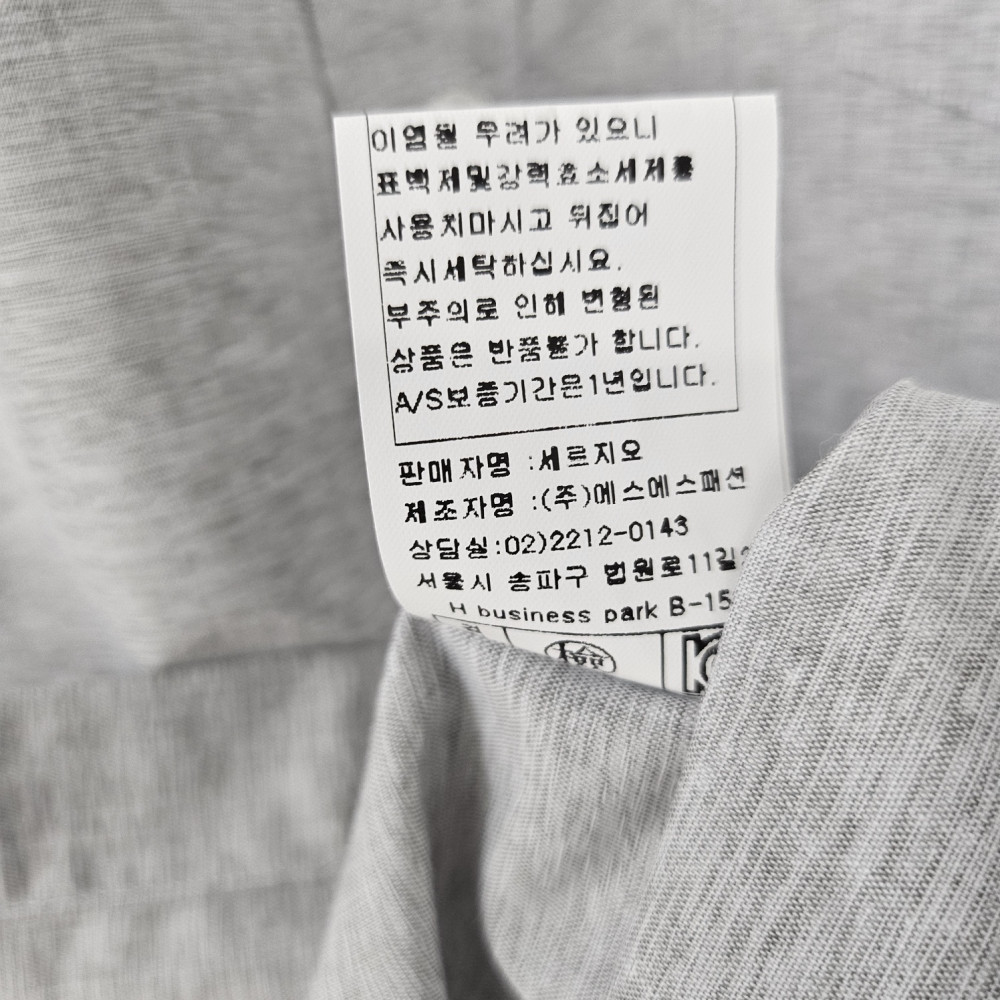 이염될 우려가 있으니
표백제및강력효소세제를
사용치마시고 뒤집어
즉시세탁하십시요.
부주의로 인해 변형된
상품은 반품불가 합니다.
A/S보증기간은1년입니다.
판매자명 :세르지오
제조자명 :(주)에스에스패션
상담실:02)2212-0143
서울시 송파구 법원로11길
H business park B-15